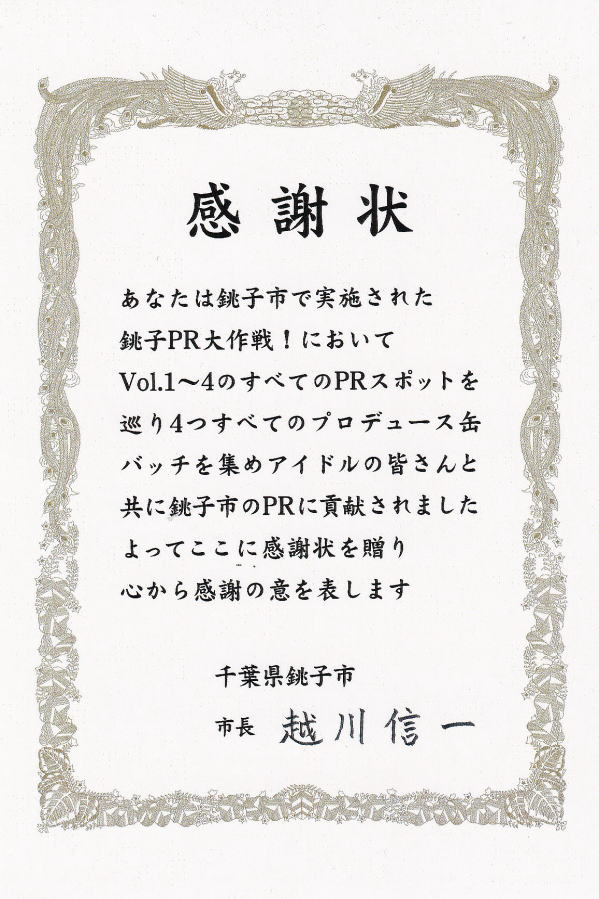 感謝状
あなたは銚子市で実施された
銚子PR大作戦！において
Vol.1～4のすべてのPRスポットを
巡り4つすべてのプロデュース缶
バッチを集めアイドルの皆さんと
共に銚子市のPRに貢献されました
よってここに感謝状を贈り
心から感謝の意を表します
千葉県銚子市
市長 越川信一